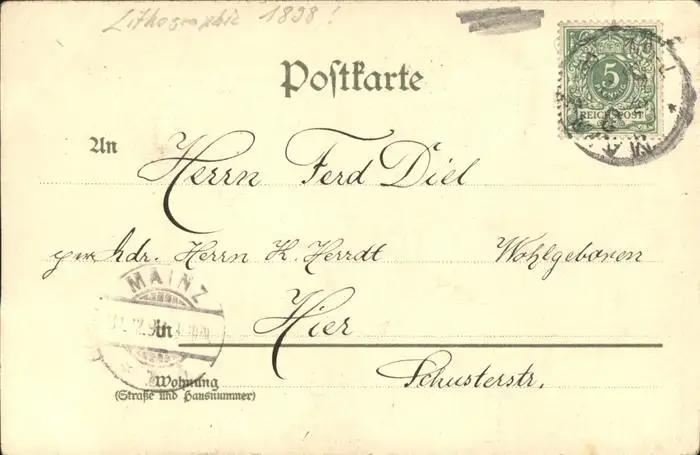 Lithographie 1898!
Postkarte
5
PFENNIG
REICHSPOST
An
Herrn Ferd Diel
per Adr. Herrn K. Herrdt Wohlgeboren
MAINZ
in Hier
Schusterstr.
Wohnung
(Straße und Hausnummer)